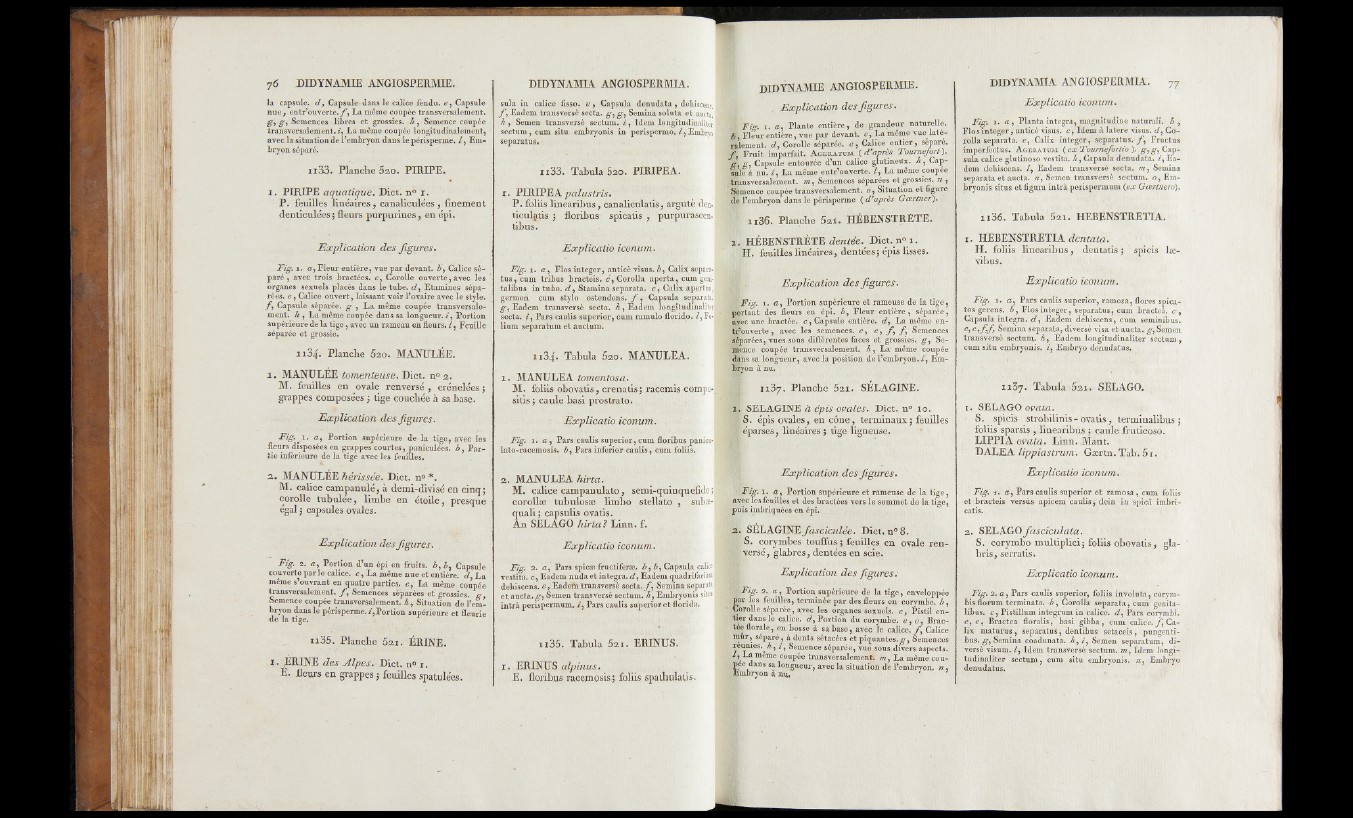 76 DIDYNAMIE ANGIOSPERMIE.
la capsule. d, Capsule dans le calice fendu. e, Capsule
nue, entr'ouverte. f, La même coupée transversalement.
g, g, Semences libres et grossies. h, Semence coupée
transversalement. i, La même coupée longitudinalement,
avec la situation de l'embryon dans le périsperme. l, Em-
bryon séparé.
1133. Planche 520. PIRIPE.
1. PIRIPE aquatique. Dict. n° 1.
P. feuilles linéaires, canaliculées, finement
denticulées; fleurs purpurines, en épi.
Explication des figures.
Fig. 1. a, Fleur entière, vue par devant. b, Calice sé-
paré, avec trois bractées. c, Corolle ouverte, avec les
organes sexuels placés dans le tube. d, Etamines sépa-
rées. e, Calice ouvert, laissant voir l'ovaire avec le style.
f, Capsule séparée. g, La même coupée transversale-
ment. h, La même coupée dans sa longueur. i, Portion
supérieure de la tige, avec un rameau en fleurs. l, Feuille
séparée et grossie.
1134. Planche 520. MANULÉE.
1. MANULÉE tomenteuse. Dict. n° 2.
M. feuilles en ovale renversé, crénelées;
grappes composées; tige couchée à sa base.
Explication des figures.
Fig. 1. a, Portion supérieure de la tige, avec les
fleurs disposées en grappes courtes, paniculées. b, Par-
tie inférieure de la tige avec les feuilles.
2. MANULÉE hérissée. Dict. n° *.
M. calice campanulé, à demi-divisé en cinq;
corolle tubulée, limbe en étoile, presque
égal; capsules ovales.
Explication des figures.
Fig. 2. a, Portion d'un épi en fruits. b, b, Capsule
couverte par le calice. c, La même nue et entière. d, La
même s'ouvrant en quatre parties. e, La même coupée
transversalement. f, Semences séparées et grossies. g,
Semence coupée transversalement. h, Situation de l'em-
bryon dans le périsperme. i, Portion supérieure et fleurie
de la tige.
1135. Planche 521. ÉRINE.
1. ÉRINE des Alpes. Dict. n° 1.
E. fleurs en grappes; feuilles spatulées.
DIDYNAMIA ANGIOSPERMIA.
sula in calice fisso. e, Capsula denudata, dehiscens.
f, Eadem transversè secta. g, g, Semina soluta et aucta.
h, Semen transversè sectum. i, Idem longitudinaliter
sectum, cum situ embryonis in perispermo. l, Embryo
separatus.
1133. Tabula 520. PIRIPEA.
1. PIRIPEA palustris.
P. foliis linearibus, canaliculatis, argutè den-
ticulatis; floribus spicatis, purpurascen-
tibus.
Explicatio iconum.
Fig. 1. a, Flos integer, anticè visus. b, Calix separa-
tus, cum tribus bracteis. c, Corolla aperta, cum geni-
talibus in tubo. d, Stamina separata. e, Calix apertus,
germen cum stylo ostendens. f, Capsula separata.
g, Eadem transversè secta. h, Eadem longitudinaliter
secta. i, Pars caulis superior, cum ramulo florido. l, Fo-
lium separatum et auctum.
1134. Tabula 520. MANULEA.
1. MANULEA tomentosa.
M. foliis obovatis, crenatis; racemis compo-
sitis; caule basi prostrato.
Explicatio iconum.
Fig. 1. a, Pars caulis superior, cum floribus panicu-
lato-racemosis. b, Pars inferior caulis, cum foliis.
2. MANULEA hirta.
M. calice campanulato, semi-quinquefido;
corollæ tubulosæ limbo stellato, subæ-
quali; capsulis ovatis.
An SELAGO hirta? Linn. f.
Explicatio iconum.
Fig. 2. a, Pars spicæ fructiferæ. b, b, Capsula calice
vestita. c, Eadem nuda et integra. d, Eadem quadrifariam
dehiscens. e, Eadem transversè secta. f, Semina separata
et aucta. g, Semen transversè sectum. h, Embryonis situs
intrà perispermum. i, Pars caulis superior et florida.
1135. Tabula 521. ERINUS.
1. ERINUS alpinus.
E. floribus racemosis; foliis spathulatis.
DIDYNAMIE ANGIOSPERMIE.
Explication des figures.
Fig. 1. a, Plante entière, de grandeur naturelle.
b, Fleur entière, vue par devant. c, La même vue laté-
ralement. d, Corolle séparée. e, Calice entier, séparé.
f, Fruit imparfait. AGERATUM (d'après Tournefort).
g, g, Capsule entourée d'un calice glutineux. h, Cap-
sule à nu. i, La même entr'ouverte. l, La même coupée
transversalement. m, Semences séparées et grossies. n,
Semence coupée transversalement. o, Situation et figure
de l'embryon dans le périsperme (d'après Gærtner).
1136. Planche 521. HÉBENSTRÈTE.
1. HÉBENSTRÈTE dentée. Dict. n° 1.
H. feuilles linéaires, dentées; épis lisses.
Explication des figures.
Fig. 1. a, Portion supérieure et rameuse de la tige,
portant des fleurs en épi. b, Fleur entière, séparée,
avec une bractée. c, Capsule entière. d, La même en-
tr'ouverte, avec les semences. e, e, f, f, Semences
séparées, vues sous différentes faces et grossies. g, Se-
mence coupée transversalement. h, La même coupée
dans sa longueur, avec la position de l'embryon. i, Em-
bryon à nu.
1137. Planche 521. SÉLAGINE.
1. SÉLAGINE à épis ovales. Dict. n° 10.
S. épis ovales, en cône, terminaux; feuilles
éparses, linéaires; tige ligneuse.
Explication des figures.
Fig. 1. a, Portion supérieure et rameuse de la tige,
avec les feuilles et des bractées vers le sommet de la tige,
puis imbriquées en épi.
2. SÉLAGINE fasciculée. Dict. n° 8.
S. corymbes touffus; feuilles en ovale ren-
versé, glabres, dentées en scie.
Explication des figures.
Fig. 2. a, Portion supérieure de la tige, enveloppée
par les feuilles, terminée par des fleurs en corymbe. b,
Corolle séparée, avec les organes sexuels. c, Pistil en-
tier dans le calice. d, Portion du corymbe. e, e, Brac-
tée florale, en bosse à sa base, avec le calice. f, Calice
mûr, séparé, à dents sétacées et piquantes. g, Semences
réunies. h, i, Semence séparée, vue sous divers aspects.
l, La même coupée transversalement. m, La même cou-
pée dans sa longueur, avec la situation de l'embryon. n,
Embryon à nu.
DIDYNAMIA ANGIOSPERMIA. 77
Explicatio iconum.
Fig. 1. a, Planta integra, magnitudine naturali. b,
Flos integer, anticè visus. c, Idem à latere visus. d, Co-
rolla separata. e, Calix integer, separatus. f, Fructus
imperfectus. AGERATUM (ex Tournefortio). g, g, Cap-
sula calice glutinoso vestita. h, Capsula denudata. i, Ea-
dem dehiscens. l, Eadem transversè secta. m, Semina
separata et aucta. n, Semen transversè sectum. o, Em-
bryonis situs et figura intrà perispermum (ex Gærtnero).
1136. Tabula 521. HEBENSTRETIA.
1. HEBENSTRETIA dentata.
H. foliis linearibus, dentatis; spicis læ-
vibus.
Explicatio iconum.
Fig. 1. a, Pars caulis superior, ramosa, flores spica-
tos gerens. b, Flos integer, separatus, cum bracteâ. c,
Capsula integra. d, Eadem dehiscens, cum seminibus.
e, e, f, f, Semina separata, diversè visa et aucta. g, Semen
transversè sectum. h, Eadem longitudinaliter sectum,
cum situ embryonis. i, Embryo denudatus.
1137. Tabula 521. SELAGO.
1. SELAGO ovata.
S. spicis strobilinis-ovatis, terminalibus;
foliis sparsis, linearibus; caule fruticoso.
LIPPIA ovata. Linn. Mant.
DALEA lippiastrum. Gærtn. Tab. 51.
Explicatio iconum.
Fig. 1. a, Pars caulis superior et ramosa, cum foliis
et bracteis versùs apicem caulis, dein in spicâ imbri-
catis.
2. SELAGO fasciculata.
S. corymbo multiplici; foliis obovatis, gla-
bris, serratis.
Explicatio iconum.
Fig. 2. a, Pars caulis superior, foliis involuta, corym-
bis florum terminata. b, Corolla separata, cum genita-
libus. c, Pistillum integrum in calice. d, Pars corymbi.
e, e, Bractea floralis, basi gibba, cum calice. f, Ca-
lix maturus, separatus, dentibus setaceis, pungenti-
bus. g, Semina coadunata. h, i, Semen separatum, di-
versè visum. l, Idem transversè sectum. m, Idem longi-
tudinaliter sectum, cum situ embryonis. n, Embryo
denudatus.